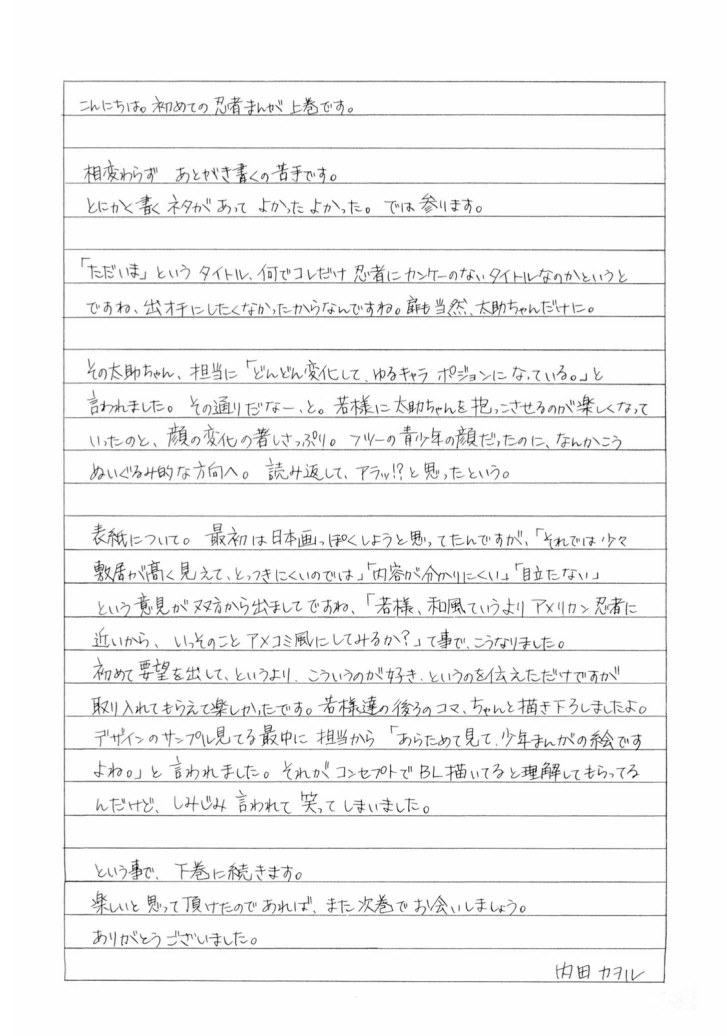 こんにちは。初めての忍者まんが上巻です。
相変わらず あとがき書くの苦手です。
とにかく書くネタがあって よかったよかった。では参ります。
「ただいま」というタイトル、何でコレだけ忍者にカンケーのないタイトルなのかというと
ですね、出オチにしたくなかったからなんですね。扉も当然、太助ちゃんだけに。
その太助ちゃん、担当に「どんどん変化して、ゆるキャラ ポジションになっている。」と
言われました。その通りだなー、と。若様に太助ちゃんを抱っこさせるのが楽しくなって
いったのと、顔の変化の著しさっぷり。フツーの青少年の顔だったのに、なんかこう
ぬいぐるみ的な方向へ。読み返して、アラッ!?と思ったという。
表紙について。最初は日本画っぽくしようと思ってたんですが、「それでは少々
敷居が高く見えて、とっつきにくいのでは」「内容が分かりにくい」「目立たない」
という意見が双方から出ましてですね、「若様、和風ていうよりアメリカン忍者に
近いから、いっそのことアメコミ風にしてみるか?」て事で、こうなりました。
初めて要望を出して、というより、こういうのが好き、というのを伝えただけですが
取り入れてもらえて楽しかったです。若様達の後ろのコマ、ちゃんと描き下ろしましたよ。
デザインのサンプル見てる最中に 担当から「あらためて見て、少年まんがの絵です
よね。」と言われました。それがコンセプトでBL描いてると理解してもらってる
んだけど、しみじみ言われて笑ってしまいました。
という事で、下巻に続きます。
楽しいと思って頂けたのであれば、また次巻でお会いしましょう。
ありがとうございました。
内田カヲル